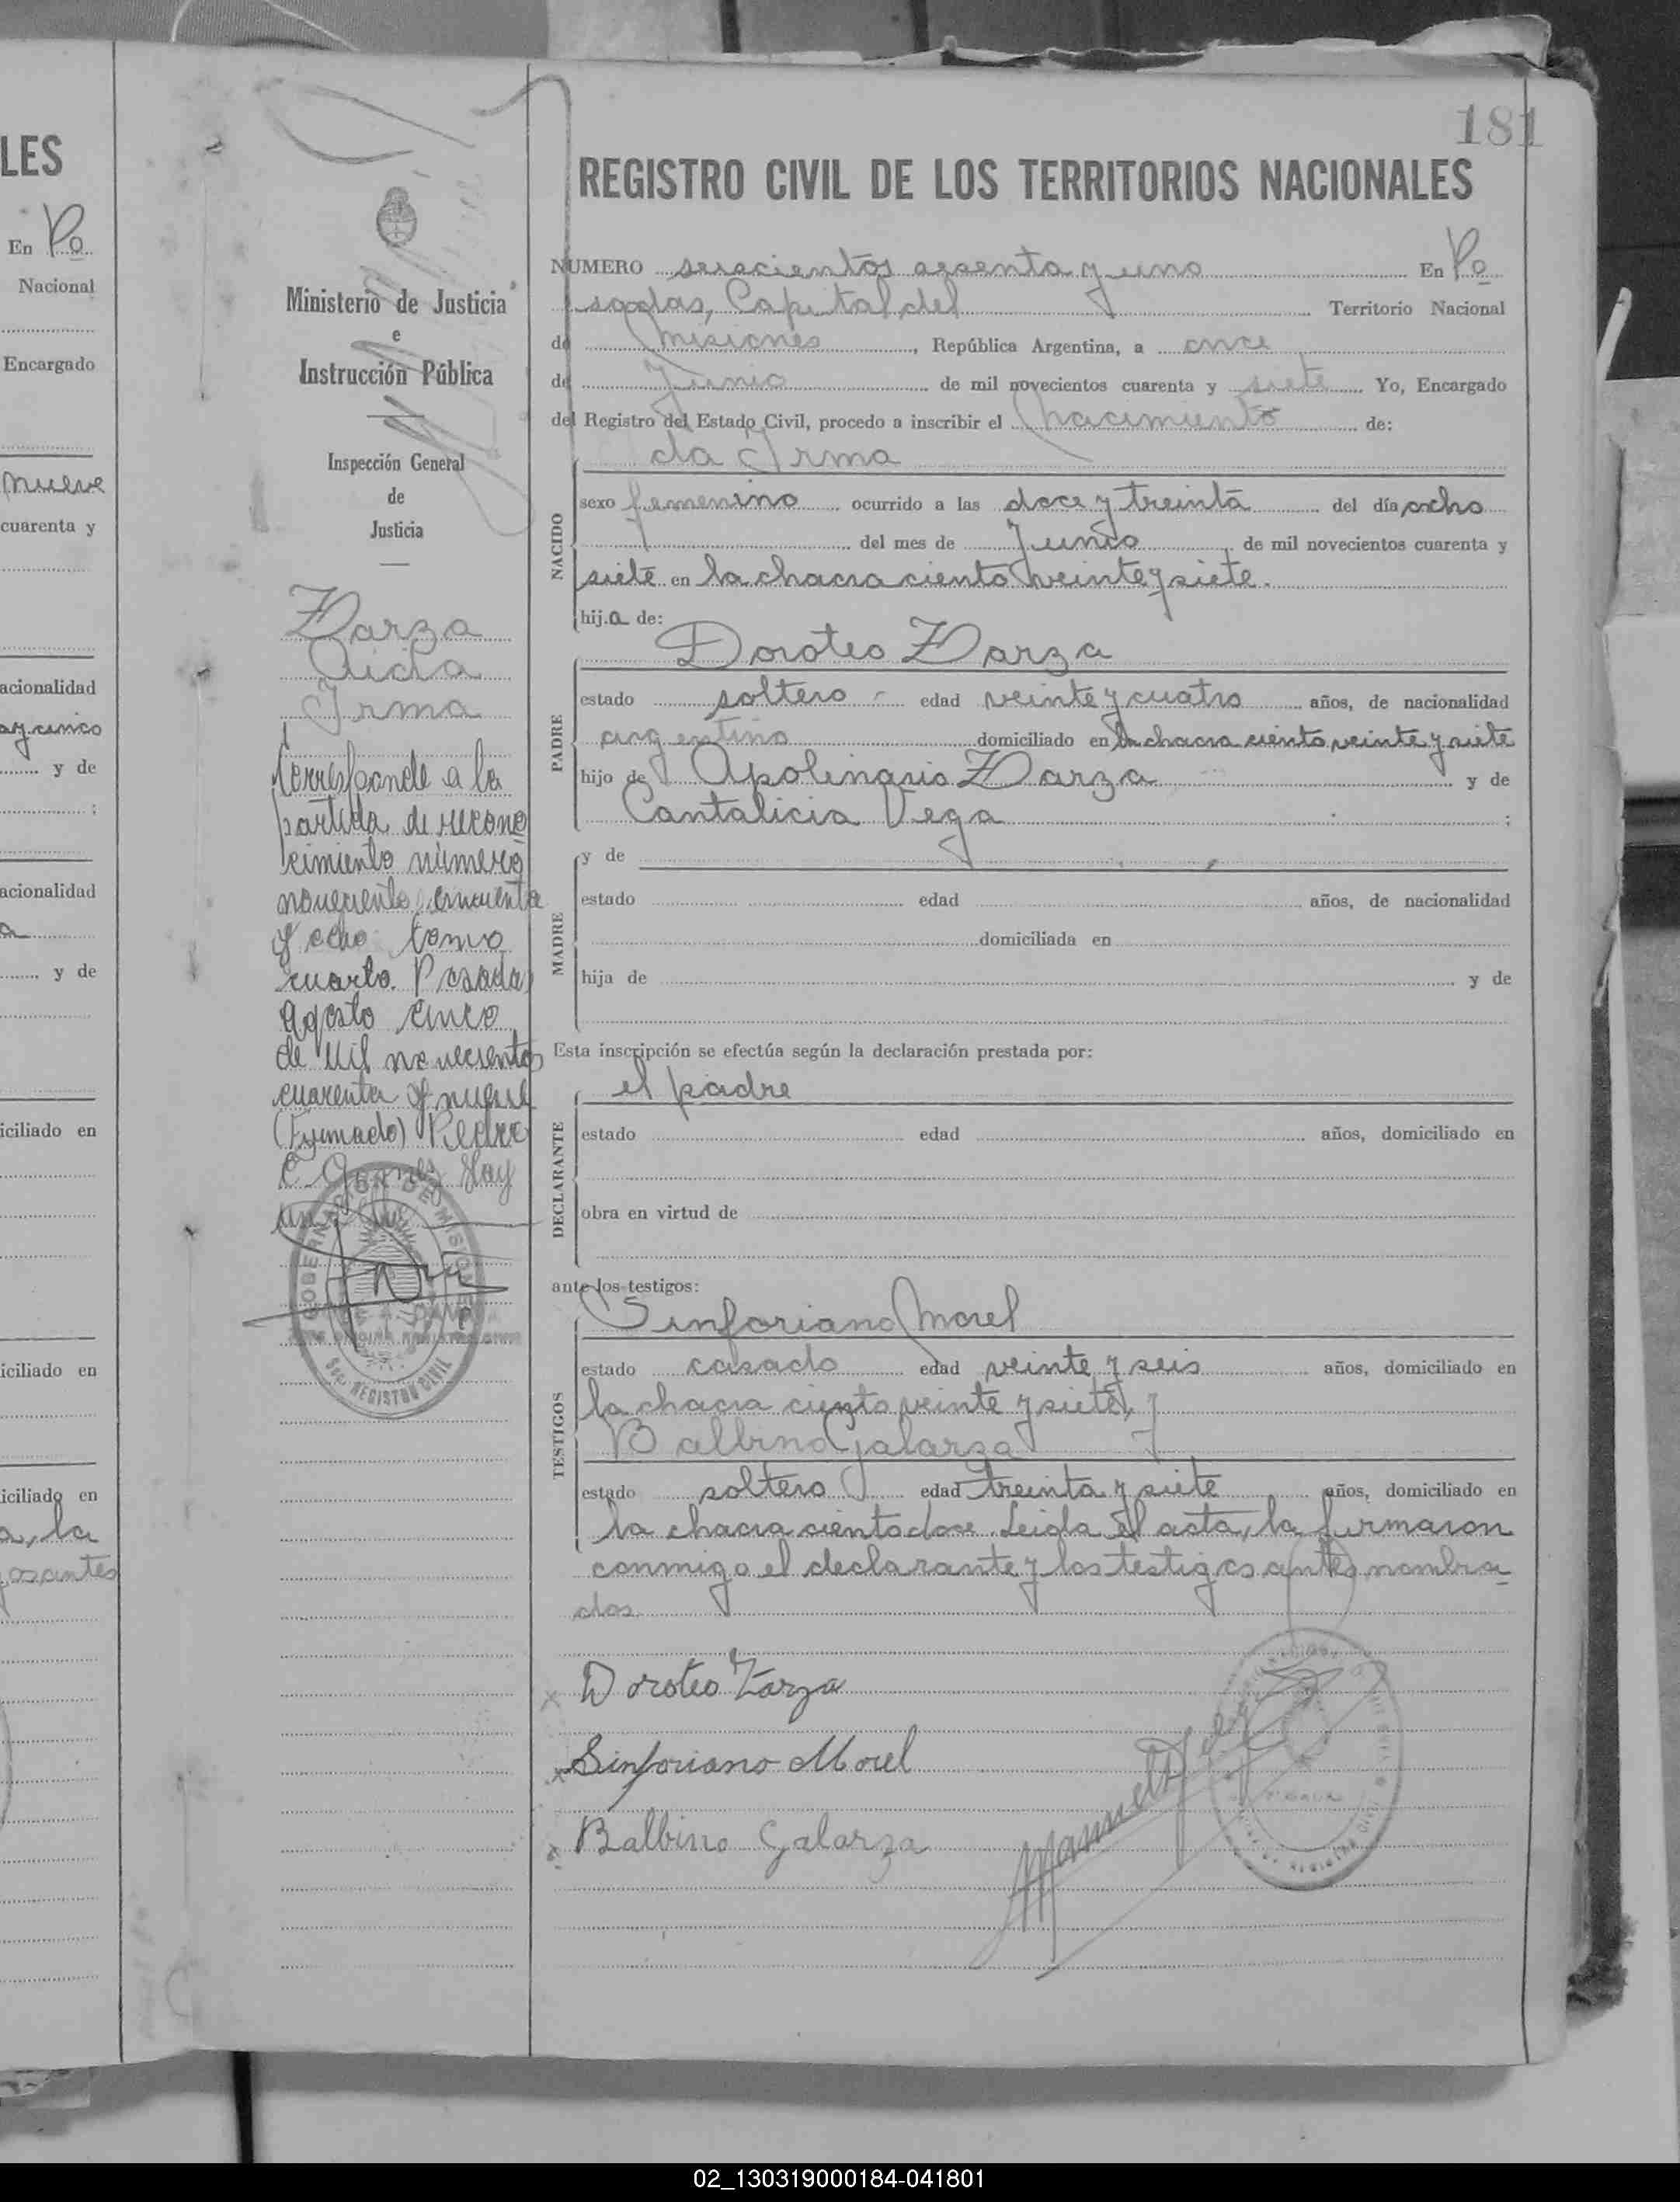 LES
En Po
Nacional
Encargado
nueve
cuarenta y
acionalidad
ay cinco
y de
;
acionalidad
a
y de
iciliado en
iciliado en
iciliado en
a, la
osantes
Ministerio de Justicia
e
Instrucción Pública
Inspección General
de
Justicia
Zarza
Aida
Irma
Corresponde a la
partida de recono
cimiento número
novecientos cincuenta
y ocho tomo
cuarto. Posadas
agosto cinco
de mil novecientos
cuarenta y nueve
(Firmado) Pedro
GOBERNACION DE MISIONES
Sec. REGISTRO CIVIL
181
REGISTRO CIVIL DE LOS TERRITORIOS NACIONALES
NUMERO seiscientos sesenta y uno En Po
sadas, Capital del Territorio Nacional
de Misiones, República Argentina, a once
de Junio de mil novecientos cuarenta y siete Yo, Encargado
del Registro del Estado Civil, procedo a inscribir el nacimiento de:
da Irma
NACIDO
sexo femenino ocurrido a las doce y treinta del día ocho
del mes de Junio, de mil novecientos cuarenta y
siete en la chacra ciento veinte y siete.
hija de:
Doroteo Zarza
PADRE
estado soltero edad veinte y cuatro años, de nacionalidad
argentino domiciliado en la chacra ciento veinte y siete
hijo de Apolinario Zarza y de
Cantalicia Vega ;
MADRE
y de
estado edad años, de nacionalidad
domiciliada en
hija de y de
Esta inscripción se efectúa según la declaración prestada por:
el padre
DECLARANTE
estado edad años, domiciliado en
obra en virtud de
ante los testigos:
Sinforiano Morel
TESTIGOS
estado casado edad veinte y seis años, domiciliado en
la chacra ciento veinte y siete, y
Balbino Galarza
estado soltero edad treinta y siete años, domiciliado en
la chacra ciento doce. Leida el acta, la firmaron
conmigo el declarante y los testigos antes nombra
dos.
x Doroteo Zarza
x Sinforiano Morel
x Balbino Galarza
02_130319000184-041801